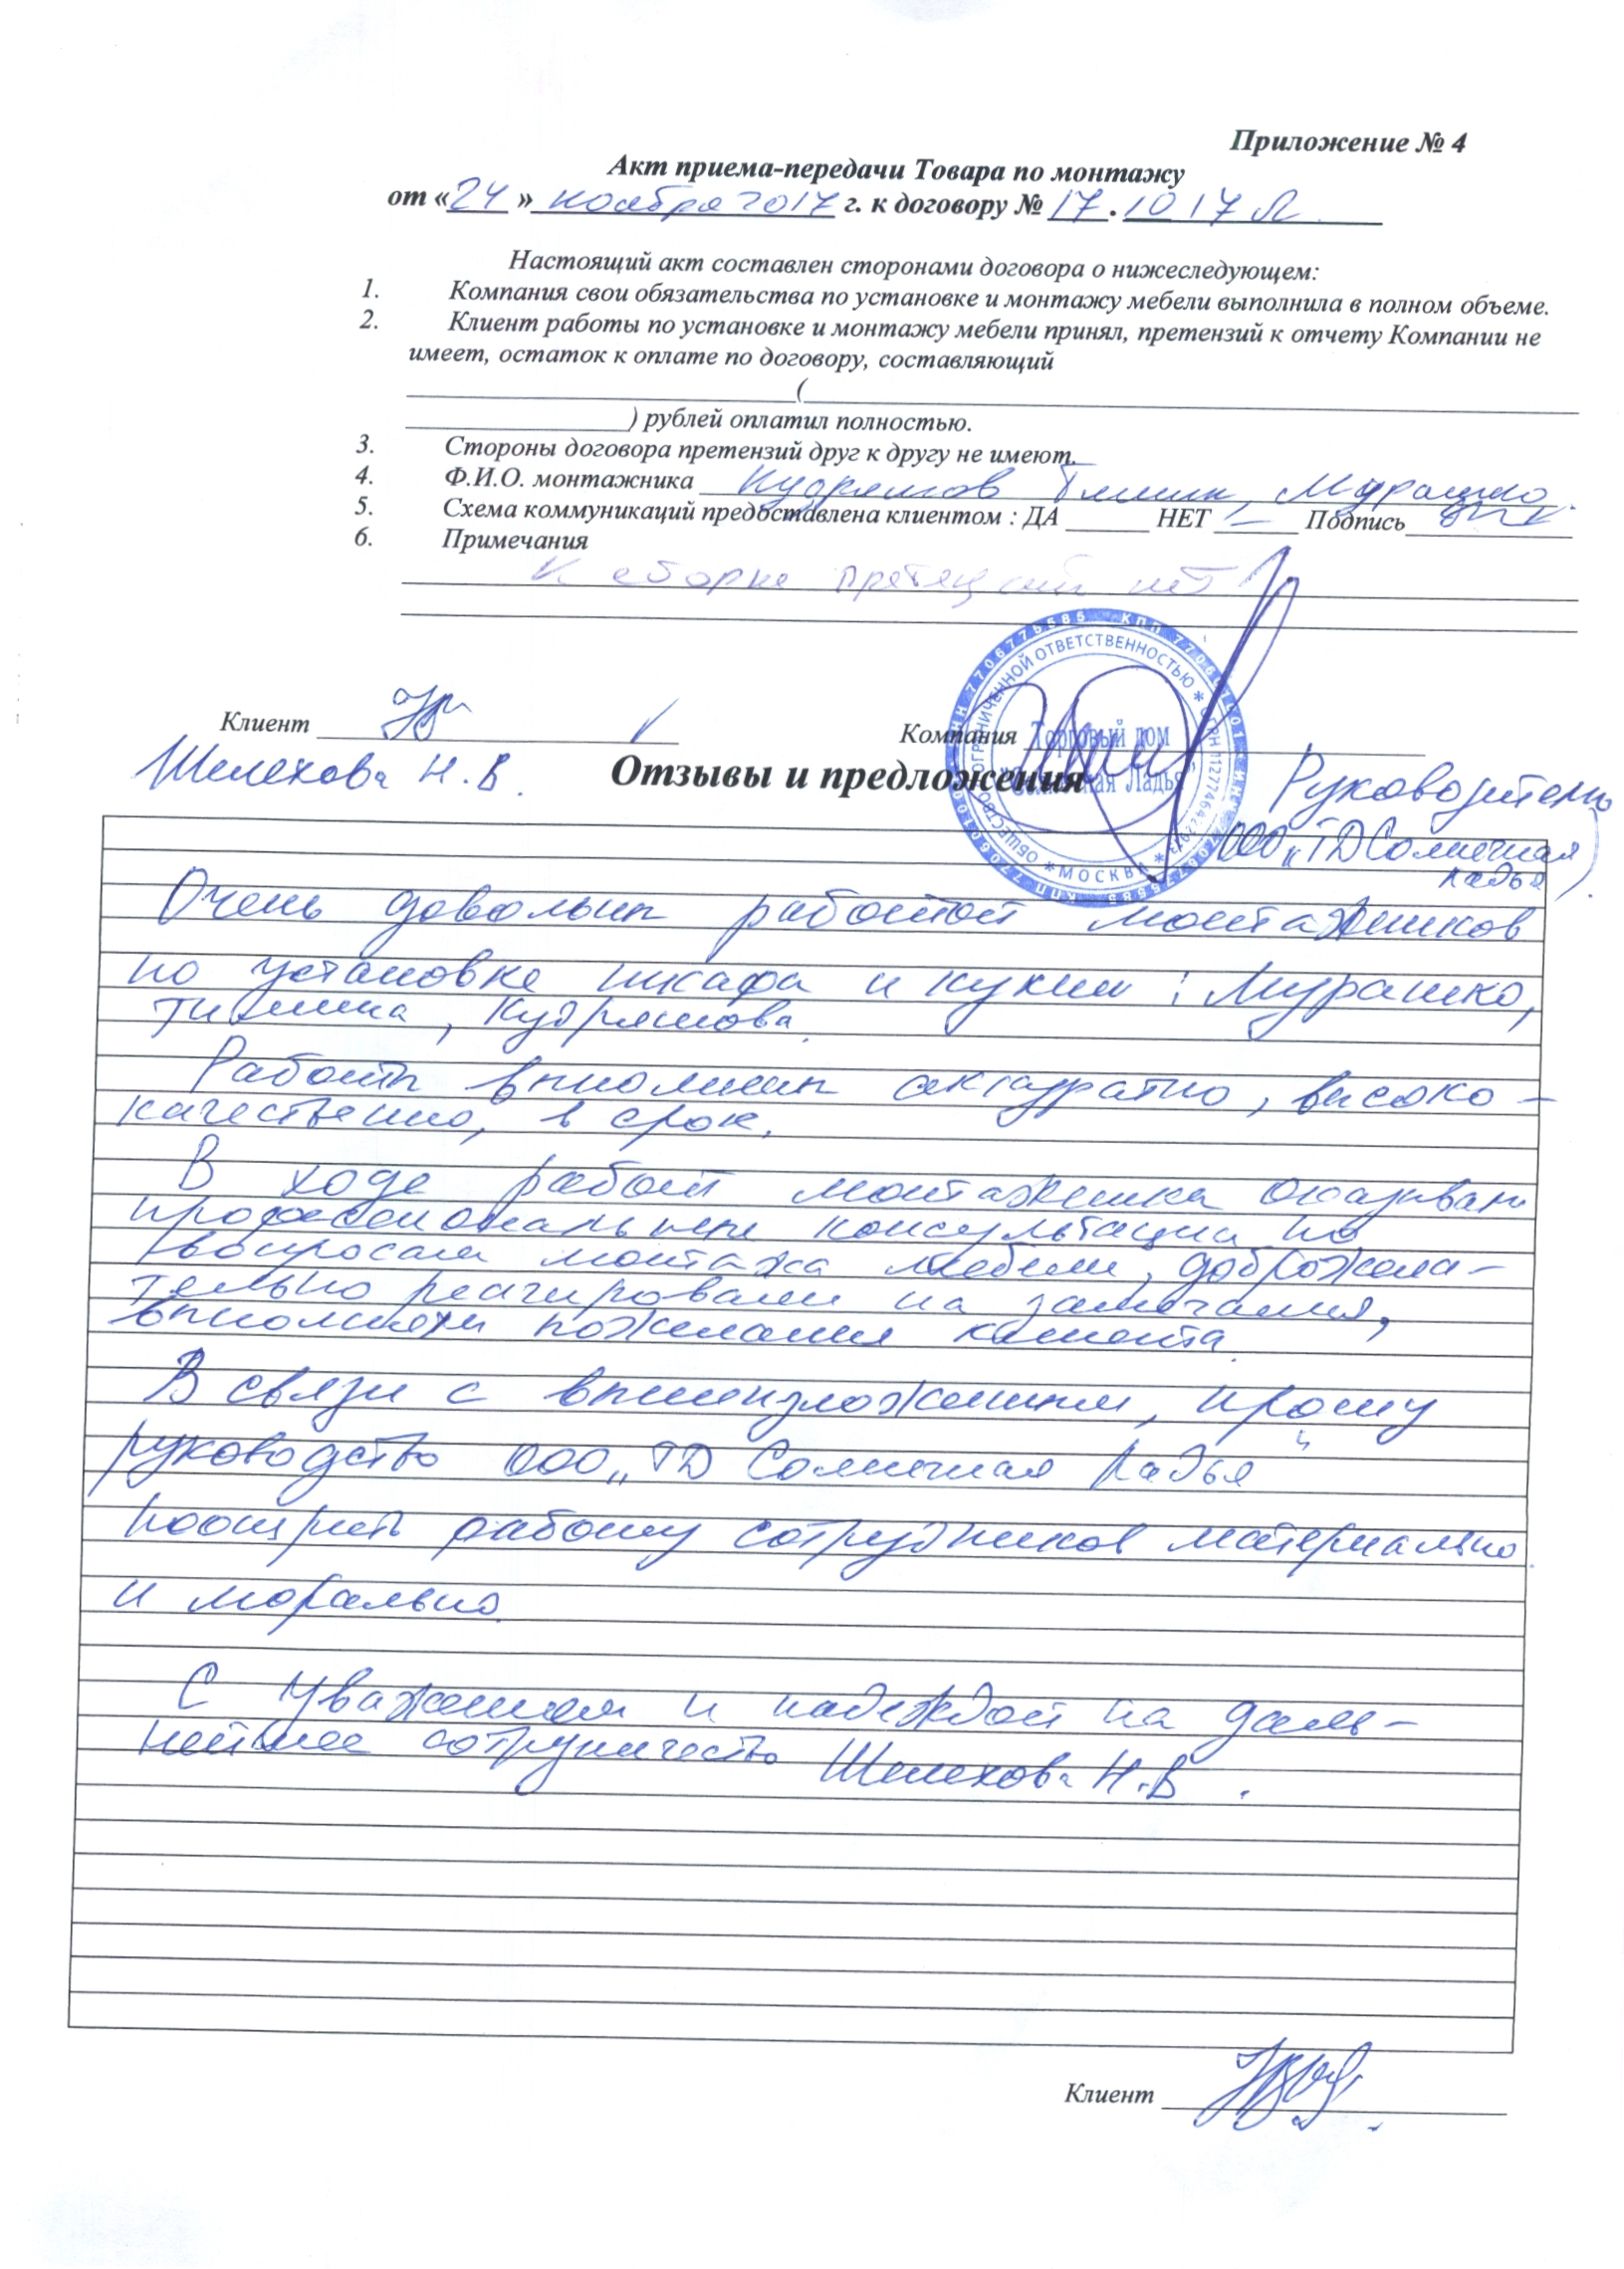 Приложение № 4
Акт приема-передачи Товара по монтажу
от «24» ноября 2017 г. к договору № 17.10 17 Л
Настоящий акт составлен сторонами договора о нижеследующем:
1. Компания свои обязательства по установке и монтажу мебели выполнила в полном объеме.
2. Клиент работы по установке и монтажу мебели принял, претензий к отчету Компании не
имеет, остаток к оплате по договору, составляющий
(
) рублей оплатил полностью.
3. Стороны договора претензий друг к другу не имеют.
4. Ф.И.О. монтажника Кудряшов Тишин, Мурашко.
5. Схема коммуникаций предоставлена клиентом : ДА НЕТ — Подпись
6. Примечания
К сборке претензий нет
Клиент Компания
Торговый дом
Солнечная Ладья
ОБЩЕСТВО С ОГРАНИЧЕННОЙ ОТВЕТСТВЕННОСТЬЮ
МОСКВА
Шелехова Н.В.
Отзывы и предложения
Руководителю
ООО „ТД Солнечная
Ладья
Очень довольны работой монтажников
по установке шкафа и кухни : Мурашко,
Тишина, Кудряшова.
Работы выполнены аккуратно, высоко-
качественно, в срок.
В ходе работ монтажника оказывали
профессиональные консультации по
вопросам монтажа мебели, доброжела-
тельно реагировали на замечания,
выполняли пожелания клиента.
В связи с вышеизложенным, прошу
руководство ООО „ТД Солнечная Ладья"
поощрить работу сотрудников материально
и морально.
С уважением и надеждой на даль-
нейшее сотрудничество Шелехова Н.В.
Клиент